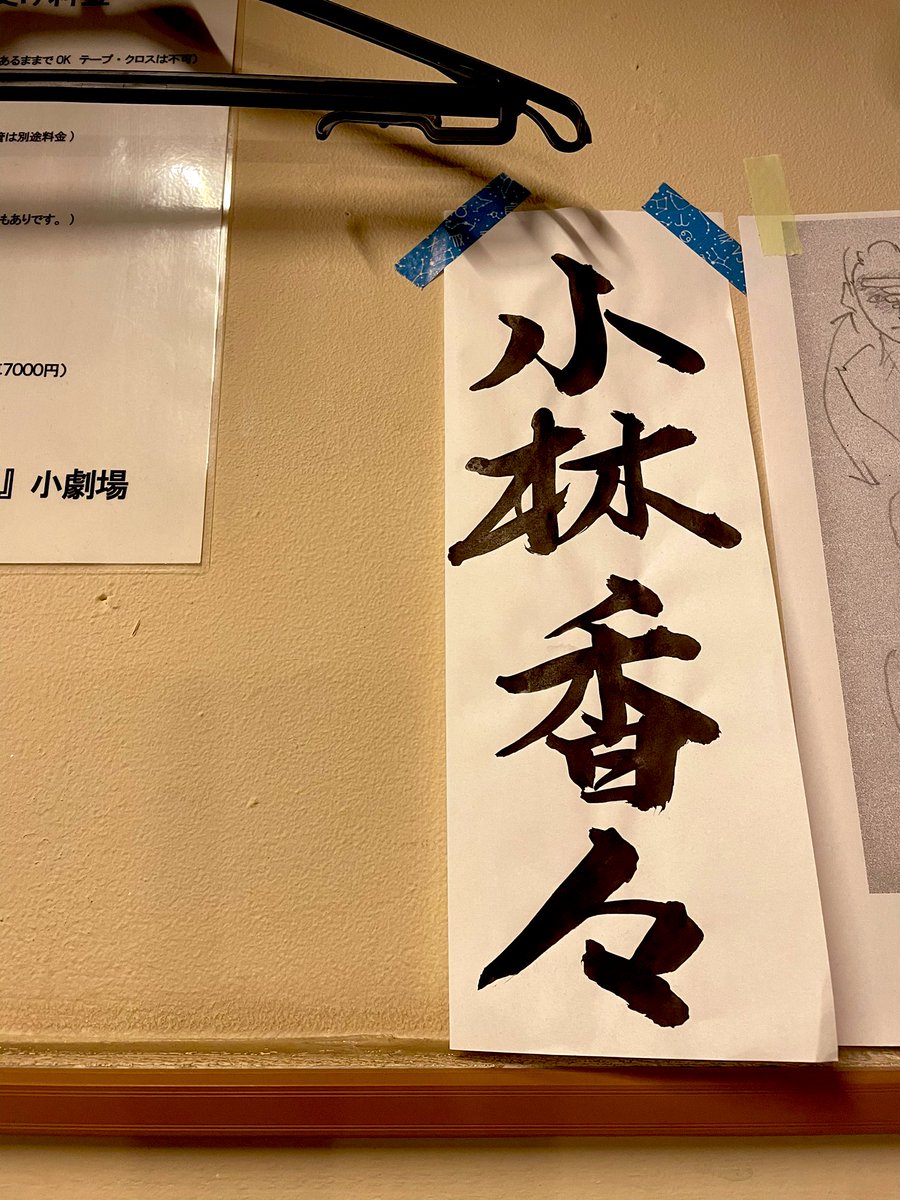 あるままでOK テープ・クロスは不可)
は別途料金)
もありです。)
7000円)
』小劇場
小林香々